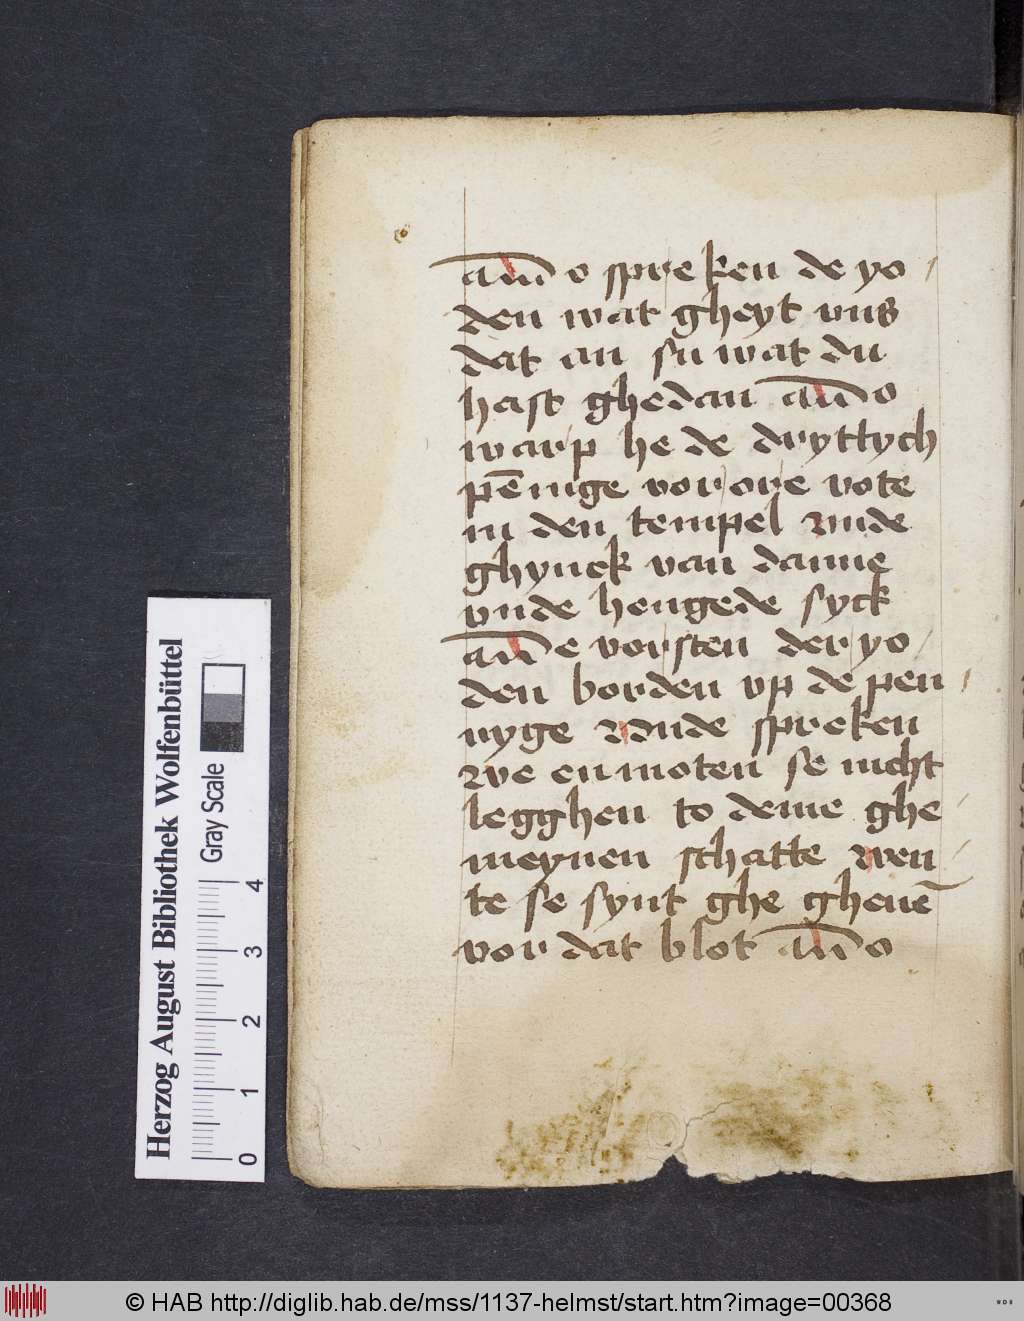 do spreken de yo
den wat gheyt vns
dat an su wat du
hast ghedan do
warp he de dryttych
pēnige vor ore vote
in den tempel vnde
ghynck van danne
vnde hengede syck
de vorsten der yo
den borden vp de pen
nyge vnde spreken
we en moten se nicht
legghen to deme ghe
meynen schatte wen
te se synt ghe gheuē
vor dat blot do
Herzog August Bibliothek Wolfenbüttel
Gray Scale
0 1 2 3 4
© HAB http://diglib.hab.de/mss/1137-helmst/start.htm?image=00368